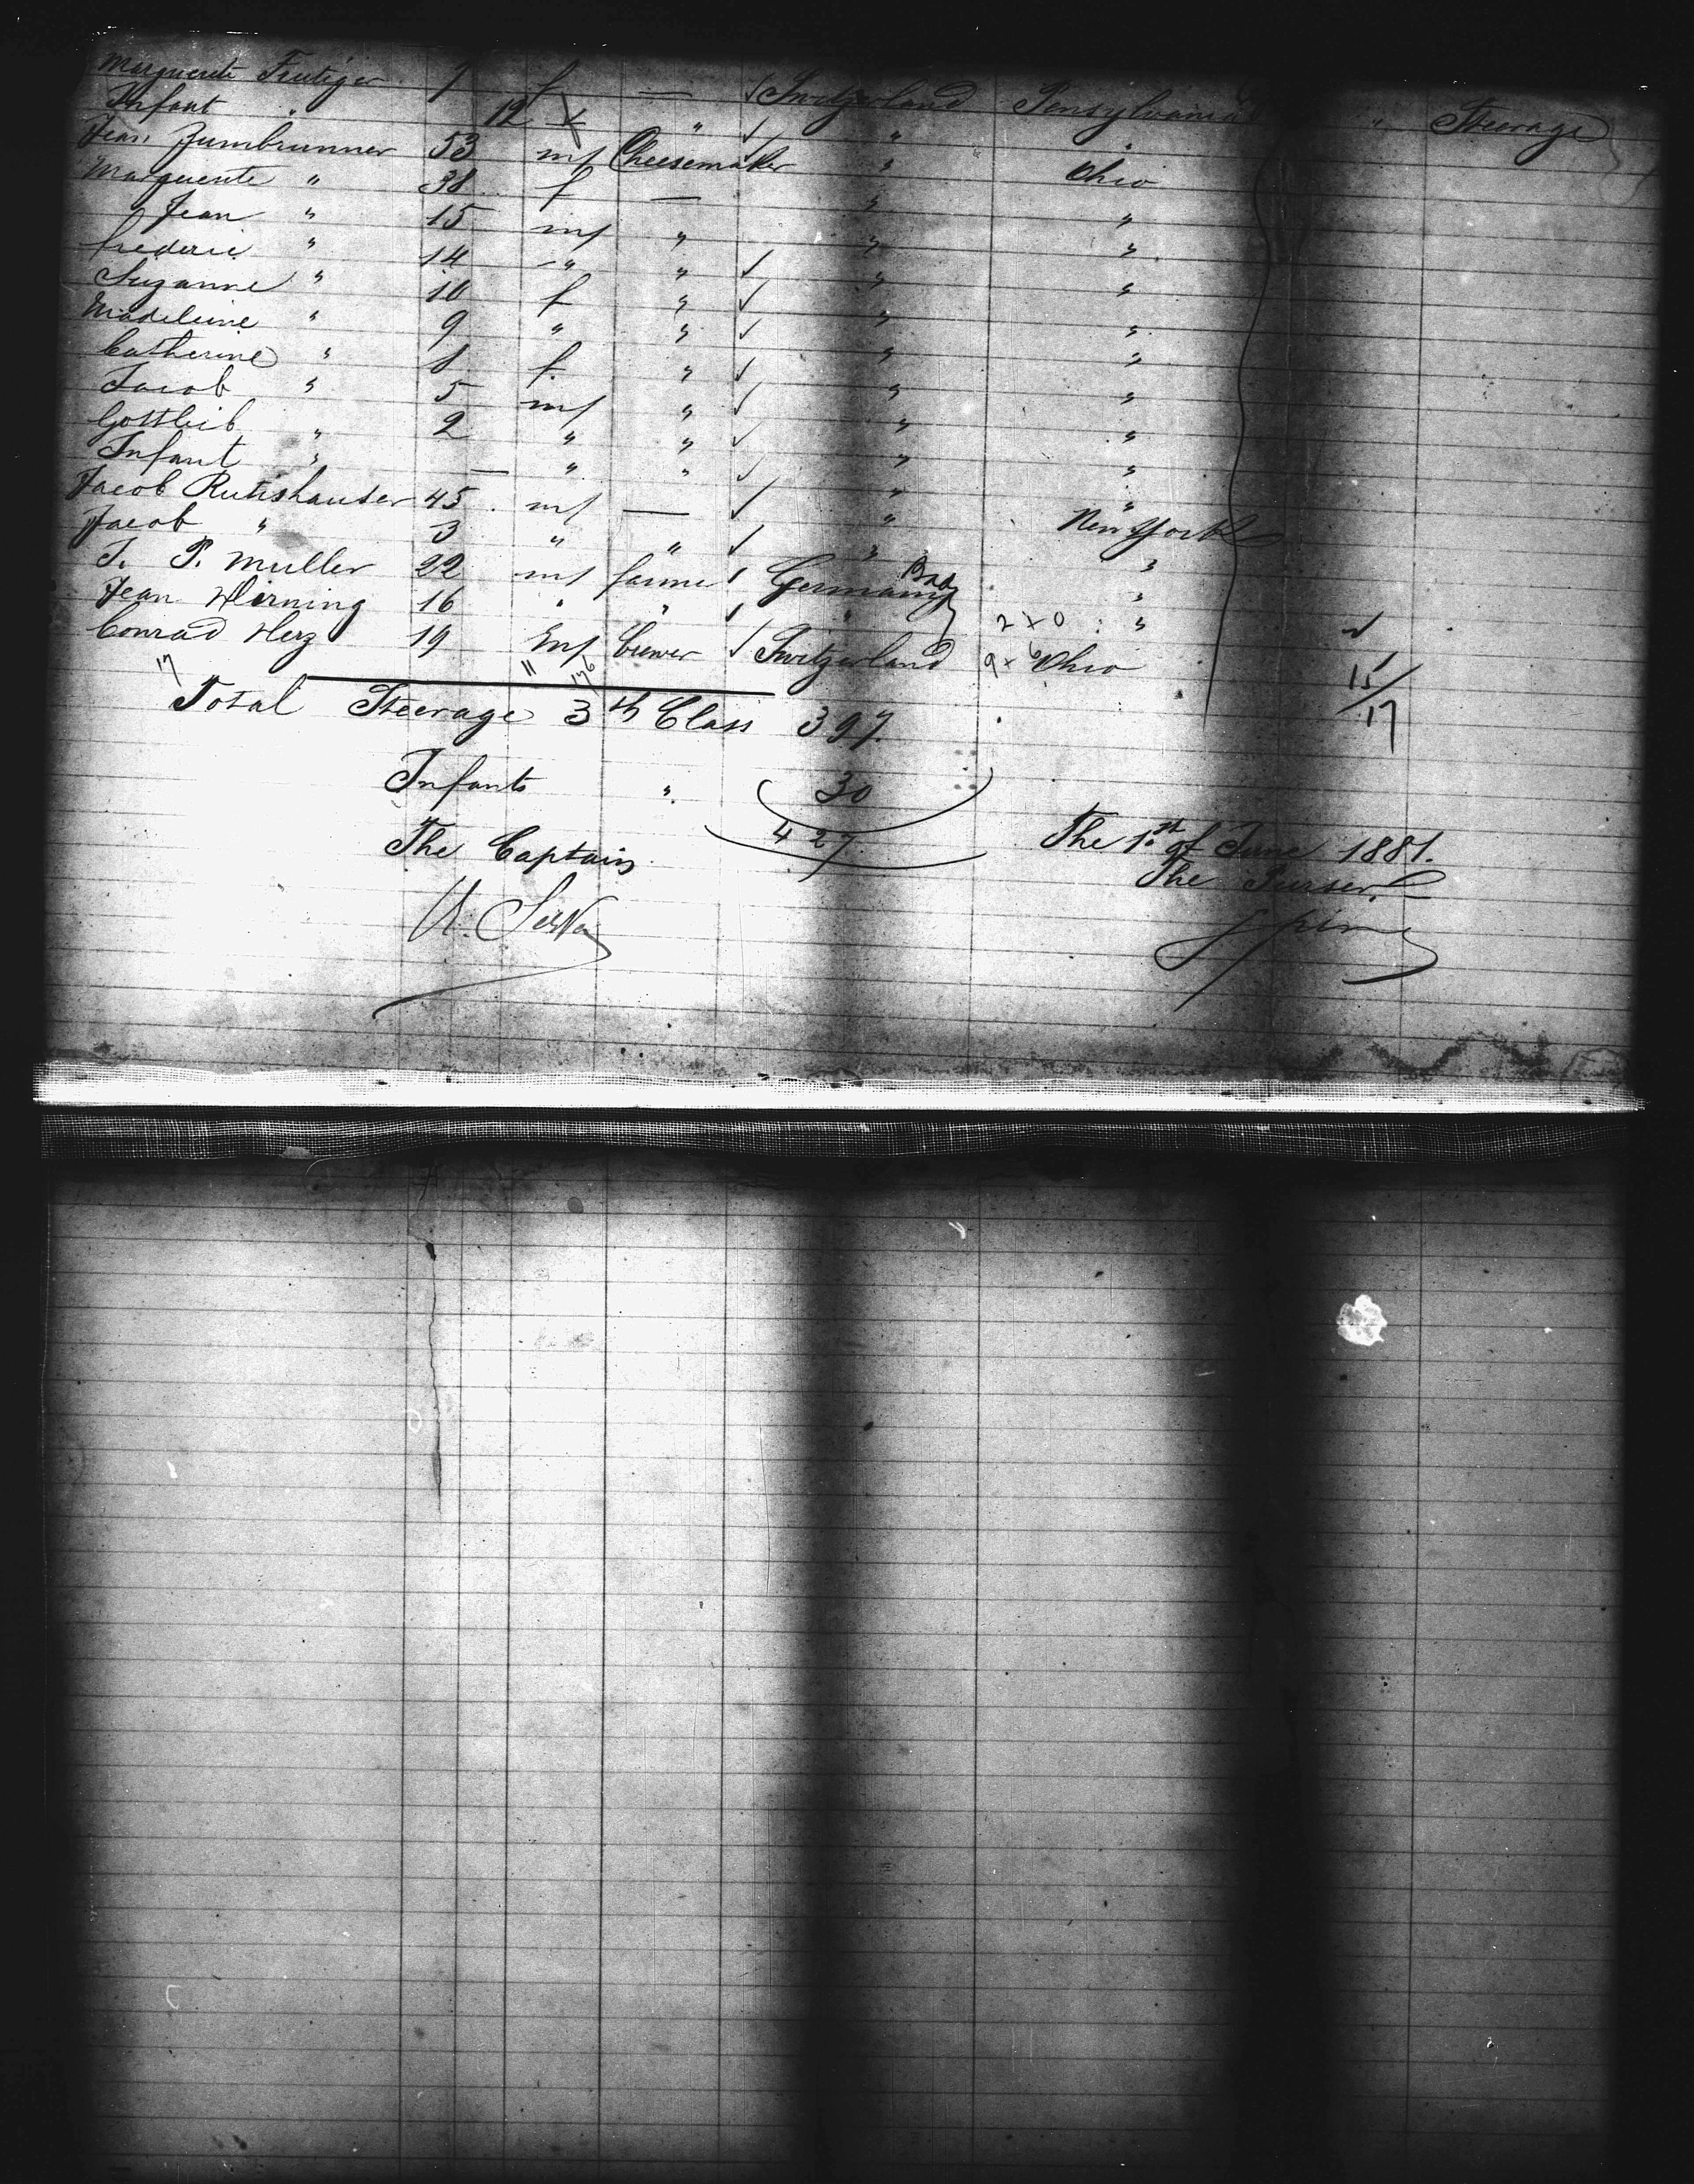 Marguerite Frutiger 7 f — ✓ Switzerland Pensylvania " Steerage
Infant " 12 x " ✓ " "
Jean Zumbrunner 53 m/ Cheesemaker " Ohio
Marguerite " 38 f — " "
Jean " 15 m/ " " "
frederic " 14 " " ✓ " "
Suzanne " 10 f " ✓ " "
Madeleine " 9 " " ✓ " "
Catherine " 8 f. " ✓ " "
Jacob " 5 m/ " ✓ " "
Gottleib " 2 " " ✓ " "
Infant " — " " ✓ " "
Jacob Rutishauser 45 m/ — ✓ " New York
Jacob " 3 " " ✓ " "
J. P. Muller 22 m/ farmer ✓ Germany Bad "
Jean Hirning 16 " " ✓ " 2 x 0 "
Conrad Herz 19 m/ brewer ✓ Switzerland 9 x 6 Ohio
17 11 176 15/17
Total Steerage 3th Class 397.
Infants " 30
427.
The Captain The 1st of June 1881.
The Purser